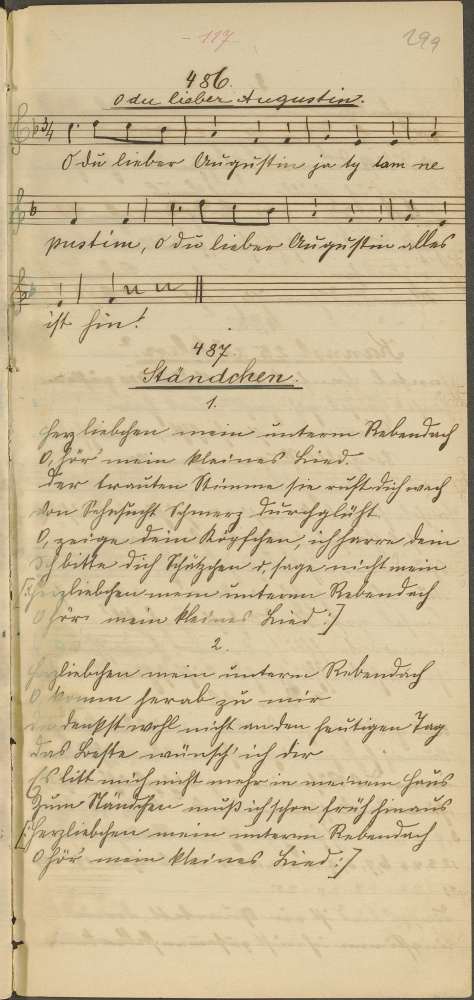 - 117
299
486.
O du lieber Augustin.
O du lieber Augustin ja ty tam ne
pustim, O du lieber Augustin alles
ist hin!
487.
Ständchen.
1.
Herzliebchen mein unterm Rebendach
O, hör' mein kleines Lied.
Der trauten Stimme sie ruft dich wach
von Sehnsucht Schmerz durchglüht
O, zeige dein Köpfchen, ich harre dein
Ich bitte dich Schätzchen o, sage nicht nein
[: Herzliebchen mein unterm Rebendach
O hör' mein kleines Lied :]
2.
Herzliebchen mein unterm Rebendach
O komm herab zu mir
du denkst wohl nicht an den heutigen Tag
Das Beste wünsch' ich dir
Es litt mich nicht mehr in meinem Haus
Zum Ständchen muß ich schon früh hinaus
[: Herzliebchen mein unterm Rebendach
O hör' mein kleines Lied :]